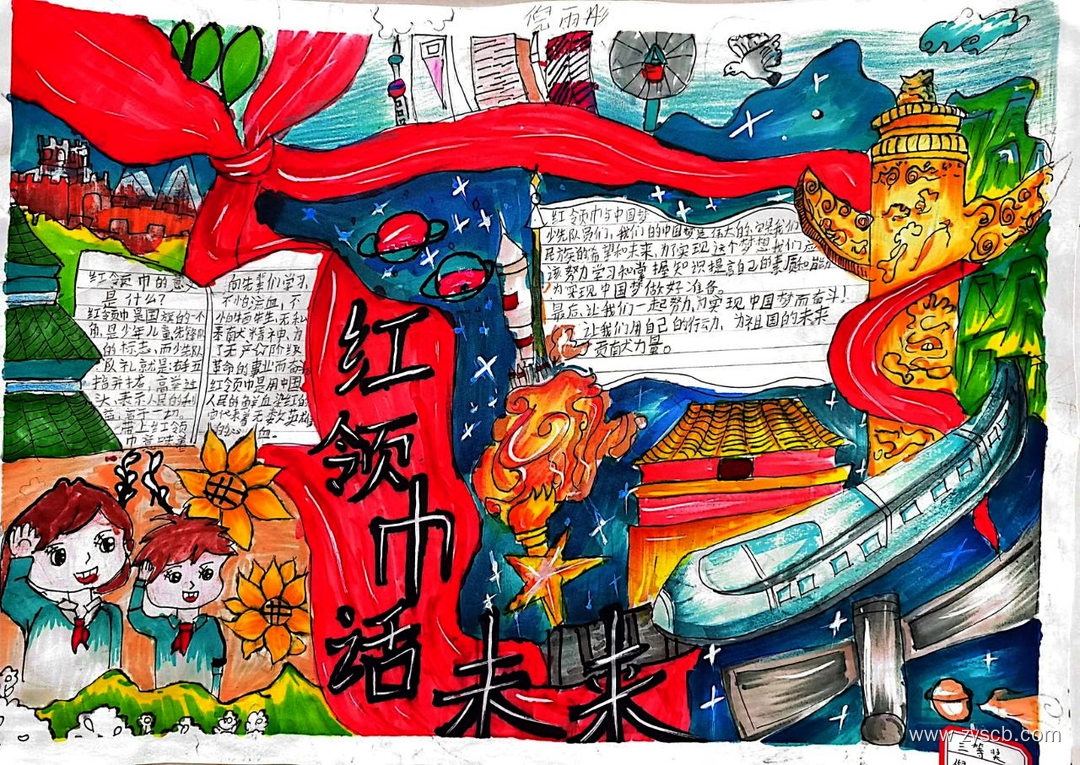 倪雨彤
红领巾的意义
是什么?
红领巾是国旗的一个
角,是少年儿童先锋队
的标志,而少先队
队礼就是将五
指并拢,高举过
头,表示人民的利
益高于一切。
戴上红领
巾就味着
向先辈们学习,
不怕流血,不
怕牺牲,无私
奉献精神,为
了无产阶级
革命的事业而奋
红领巾是用中国
人民的鲜血染红的
它代表着无数英雄
的心血。
红领巾与中国梦
少先队员们,我们的中国梦是伟大的,它是我们
民族的希望和未来,为实现这个梦想我们应
该努力学习和掌握知识提高自己的素质和能力
为实现中国梦做好准备。
最后,让我们一起努力,为实现中国梦而奋斗!
让我们用自己的行动,为祖国的未来
贡献力量。
红领巾话未来
www.zyscb.com
三等奖